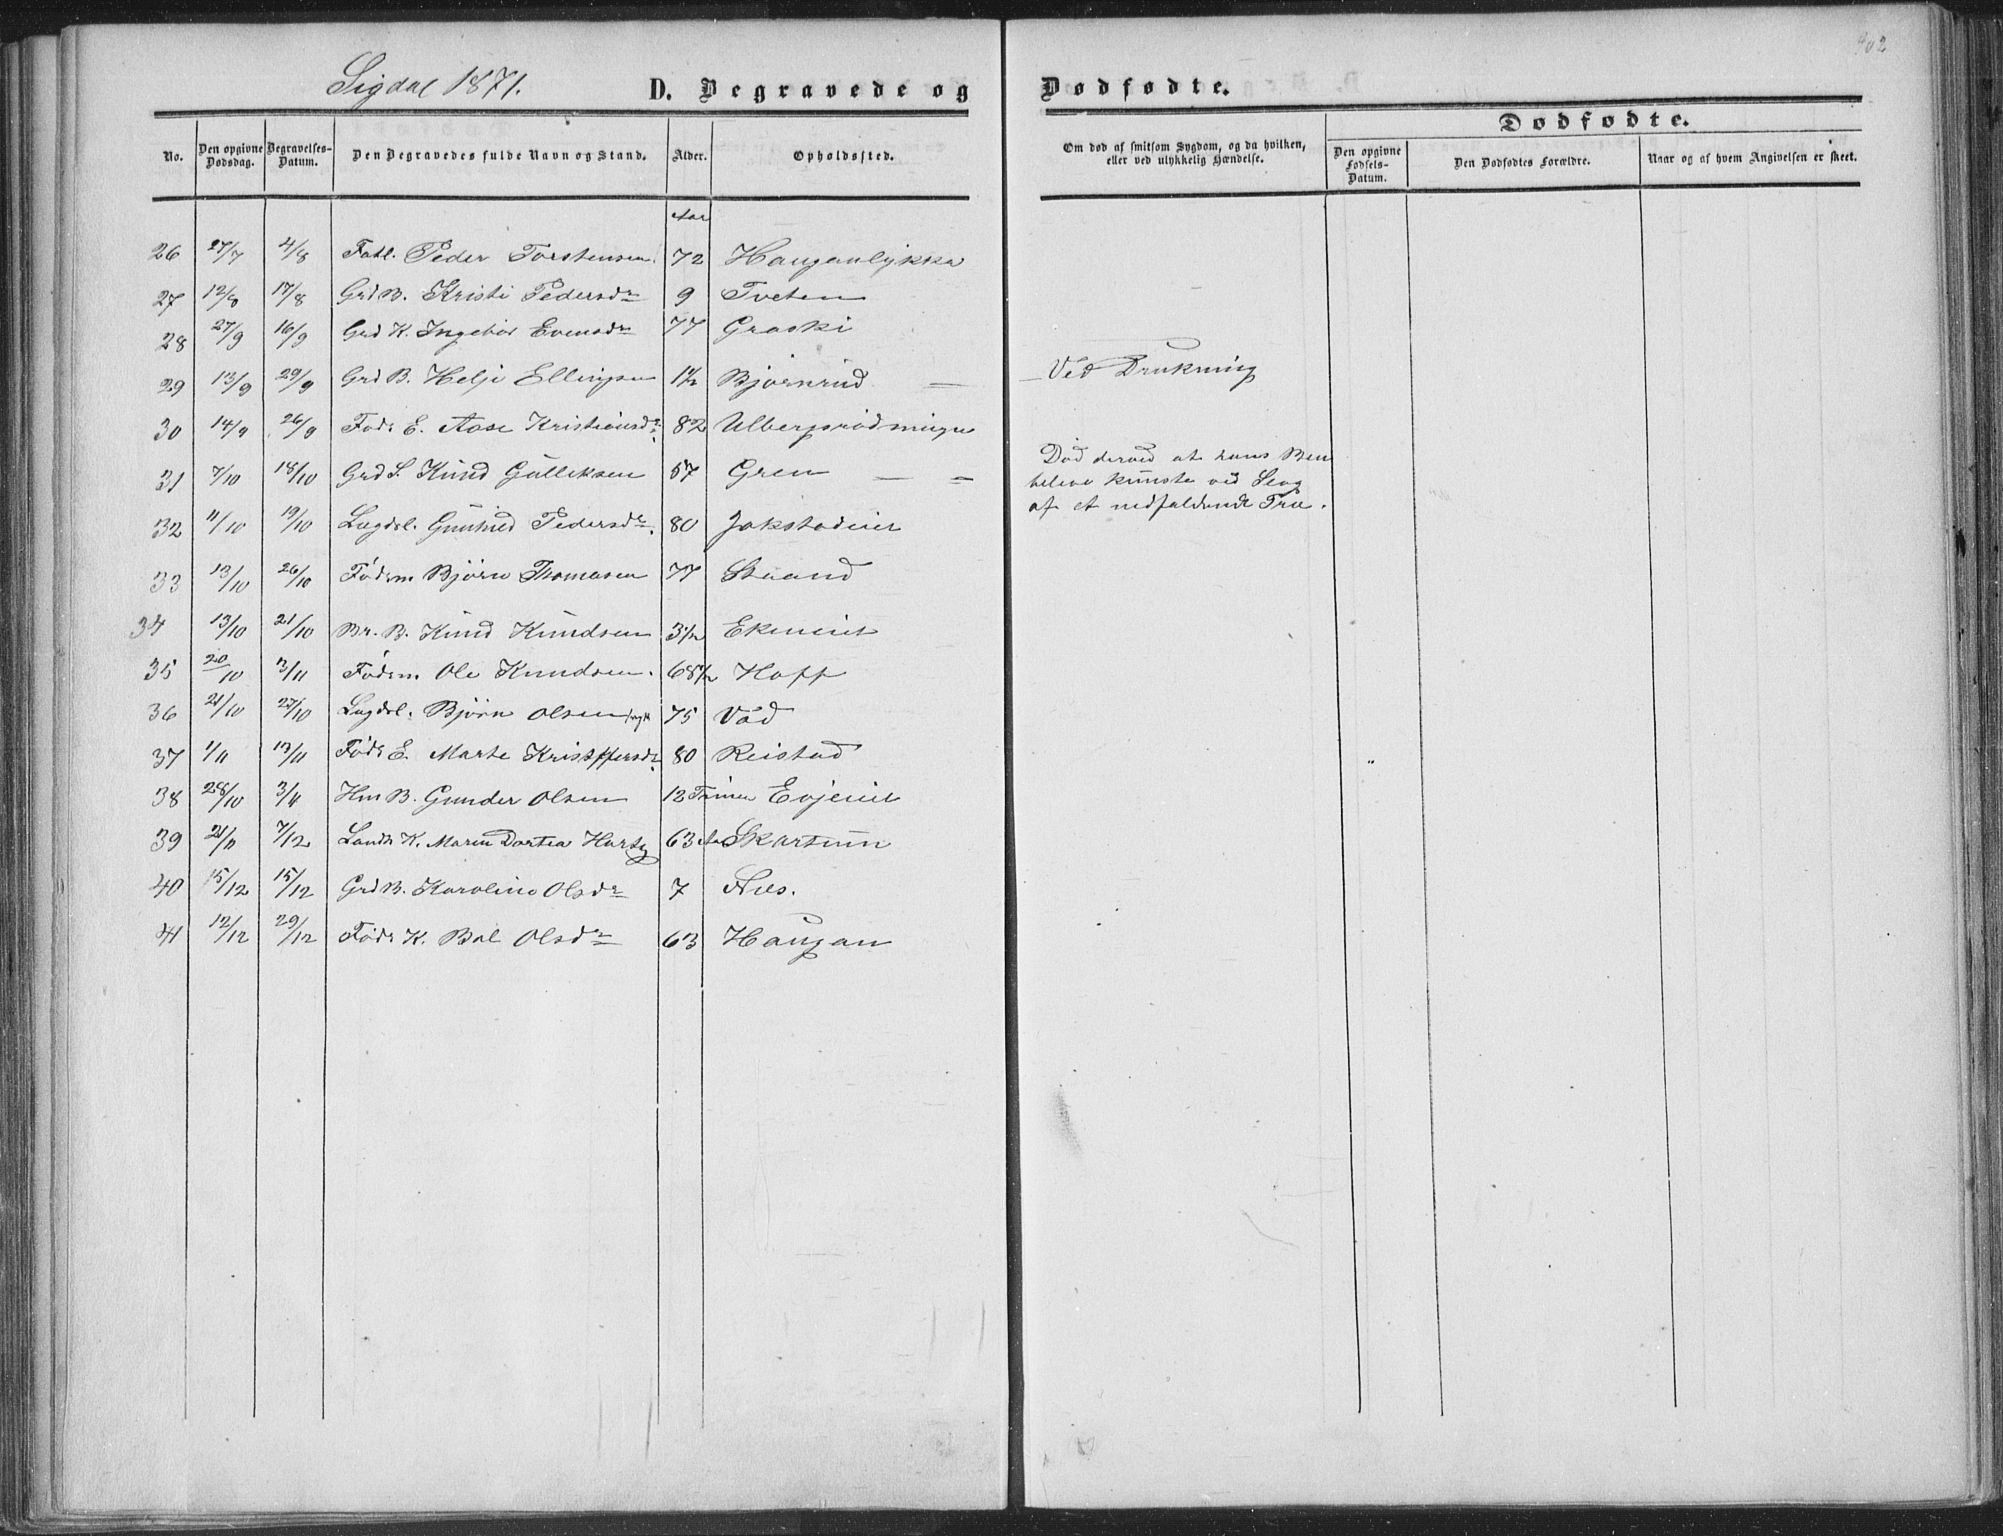 402
Sigdal 1871.
D. Begravede og Dødfødte.
Dødfødte.
No. Den opgivne Dødsdag. Begravelses-Datum. Den Begravedes fulde Navn og Stand. Alder. Opholdssted. Om død af smitsom Sygdom, og da hvilken, eller ved ulykkelig Hændelse. Den opgivne Fødsels-Datum. Den Dødfødtes Forældre. Naar og af hvem Angivelsen er skeet.
Aar
26 27/7 4/8 Fatl. Peder Torstensen 72 Hauganlykka
27 12/8 17/8 Grd B. Kristi Pedersdr 9 Tveten
28 27/9 16/9 Grd K. Ingebor Evensdr 77 Graski
29 13/9 29/9 Grd B. Helje Ellingsen 1 1/2 Bjørnrud — Ved Drukning
30 14/9 26/9 Føds E. Aase Kristiansdr 82
31 7/10 18/10 Grd S. Knud Gulliksen 57 Gren — — Død derved at hans Ben
bleve knuste ved Slag
af et nedfaldende Træ.
32 11/10 19/10 Lægdsl. Gunhild Pedersdr 80 Jokstadeiet
33 13/10 26/10 Födsm Björn Thomasen 77 Skaand
34 13/10 21/10 Br. B. Knud Knudsen 3 1/2 Ekereiet
35 20/10 3/11 Födsm Ole Knudsen. 68 1/2 Hoff
36 21/10 27/10 Lægdsl. Björn Olsen 75 Vad
37 1/11 13/11 Föds E. Marte Kristoffersdr 80 Reistad
38 28/10 3/4 Hm B. Gunder Olsen 12 Timer Evjeeiet
39 21/11 7/12 Landh K. Maren Dortea 63 Aar Skartum
40 15/12 15/12 Grd B. Karoline Olsdr 7 Aas.
41 12/12 29/12 Föds K. Bol Olsdr 63 Haugan